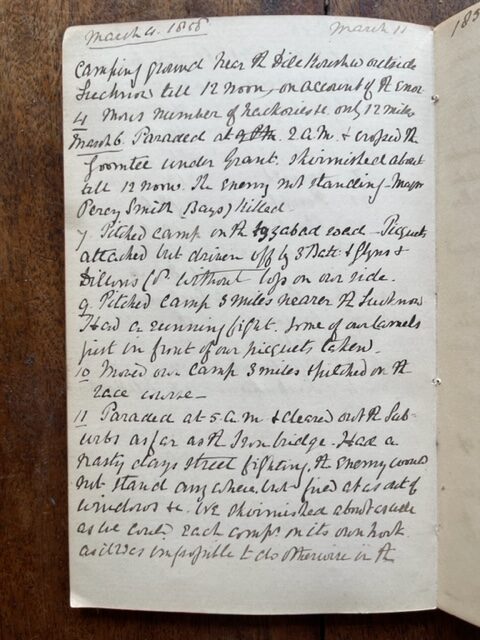 March 4. 1858 March 11
camping ground near the Dilkoosha outside
Lucknow till 12 noon, on account of the enor
4 mous number of hackories &c. only 12 miles
March 6. Paraded at 2 A.M. & crossed the
Goomtee under Grant. Skirmished about
till 12 noon. The Enemy not standing - Major
Percy Smith (Bays) killed.
7. Pitched camp on the Fyzabad road - Picquets
attacked but driven off by 3 Batt: & Glyns &
Dillons Co without loss on our side.
9. Pitched camp 3 miles nearer the Lucknow
Had a running fight. Some of our camels
just in front of our picquets taken.
10 Moved our camp 3 miles & pitched on the
race course -
11 Paraded at 5. A.M & cleared out the Sub-
urbs as far as the Iron bridge. Had a
nasty days street fighting, the enemy would
not stand any where but fired at us out of
windows &c. We skirmished about
as we could. Each compy. on its own hook
as it was impossible to do otherwise in the
185